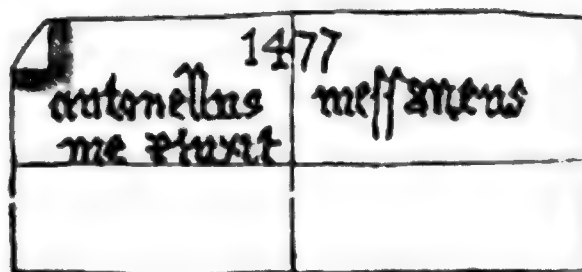 1477
antonellus messaneus
me pinxit